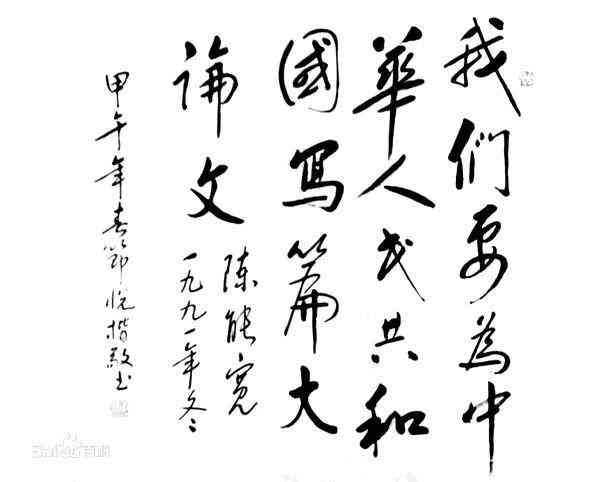 我们要為中
華人民共和
國寫篇大
論文
陈能宽
一九九一年冬
甲午年春節悦楷敬书
Baidu百科